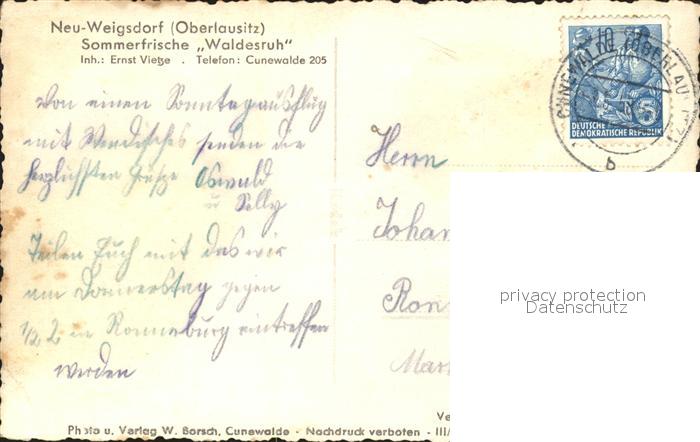 Neu-Weigsdorf (Oberlausitz)
Sommerfrische „Waldesruh"
Inh.: Ernst Vietze . Telefon: Cunewalde 205
Von einen Sonntagausflug
mit senden die
herzlichsten Grüße Oswald
u Selly
Teilen Euch mit das wir
am Donnerstag gegen
1/2 2 in Ronneburg eintreffen
werden
DEUTSCHE
DEMOKRATISCHE REPUBLIK
5
b
Herrn
Johan
Ron
privacy protection
Datenschutz
Ve
Photo u. Verlag W. Borsch, Cunewalde - Nachdruck verboten - III/